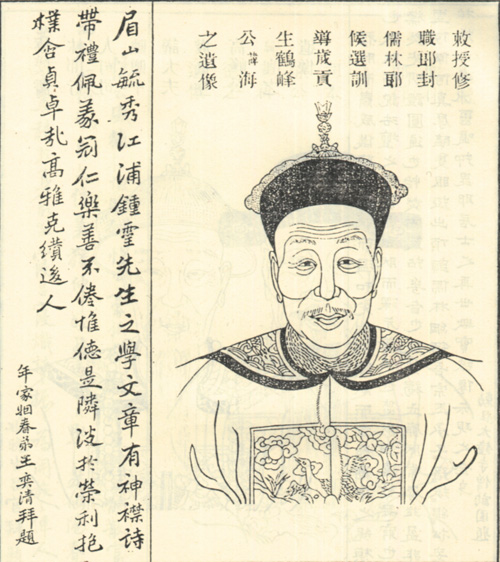 敕授修
職郎封
儒林郎
候選訓
導歲貢
生鶴峰
公諱海
之遺像
眉山毓秀江浦鍾靈先生之學文章有神襟詩
帶禮佩義冠仁樂善不倦惟德是隣淡扵榮利抱
樸含貞卓㦲高雅克纘後人
年家姻眷弟王奕清拜題